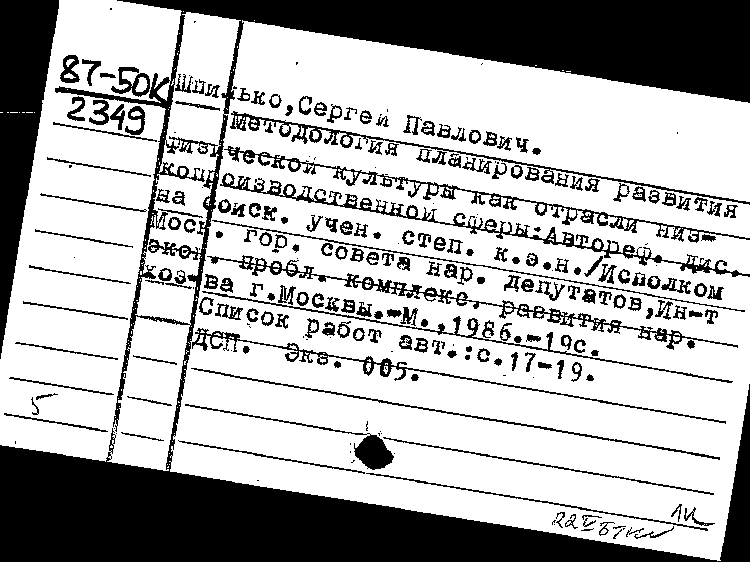 87-50К
2349
Шпилько,Сергей Павлович.
Методология планирования развития
физической культуры как отрасли низ-
копроизводственной сферы:Автореф. дис.
на соиск. учен. степ. к.э.н./Исполком
Моск. гор. совета нар. депутатов,Ин-т
экон. пробл. комплекс. развития нар.
хоз-ва г.Москвы.-М.,1986.-19с.
Список работ авт.:с.17-19.
ДСП. Экз. 005.
5